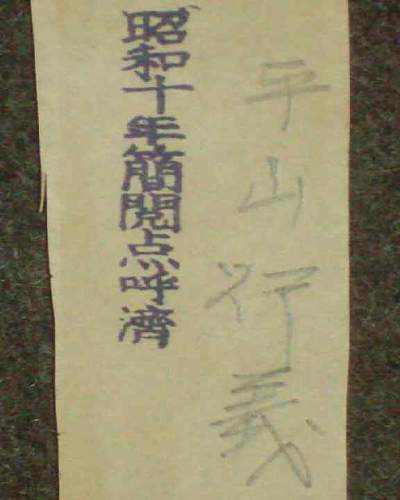 平山行義
昭和十年簡閲点呼濟